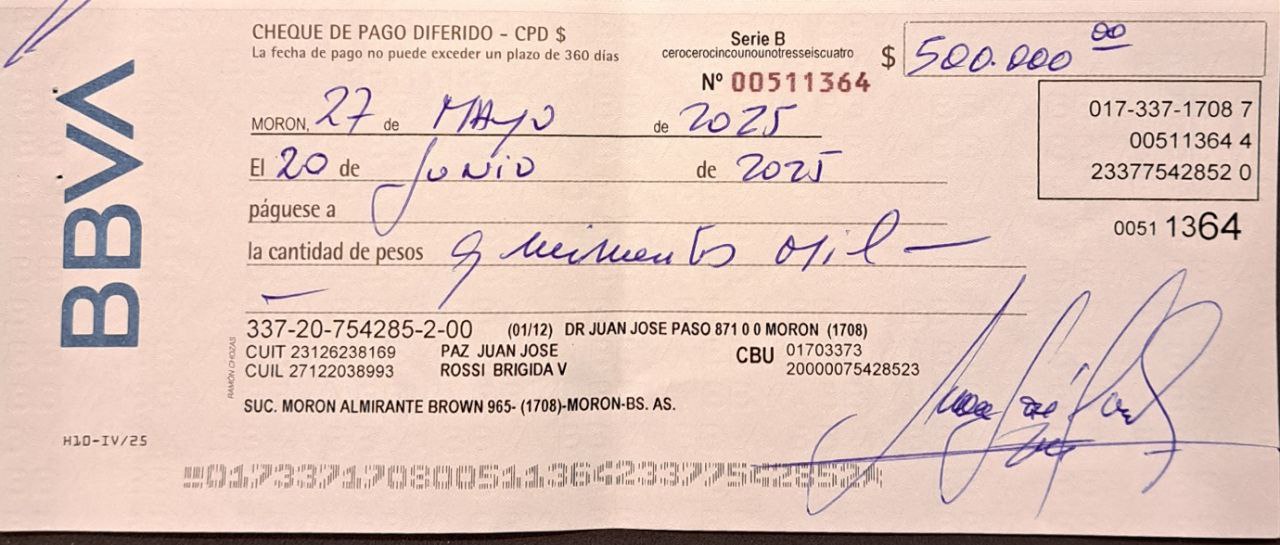 BBVA
CHEQUE DE PAGO DIFERIDO - CPD $
La fecha de pago no puede exceder un plazo de 360 días
Serie B
cerocerocincounounotresseiscuatro
Nº 00511364
$ 500.000 00
017-337-1708 7
00511364 4
23377542852 0
0051 1364
MORON, 27 de MAYO de 2025
El 20 de Junio de 2025
páguese a
la cantidad de pesos quinientos mil —
—
337-20-754285-2-00 (01/12) DR JUAN JOSE PASO 871 0 0 MORON (1708)
CUIT 23126238169 PAZ JUAN JOSE
CUIL 27122038993 ROSSI BRIGIDA V
CBU 01703373
20000075428523
RAMÓN CHOZAS
SUC. MORON ALMIRANTE BROWN 965- (1708)-MORON-BS. AS.
H10-IV/25